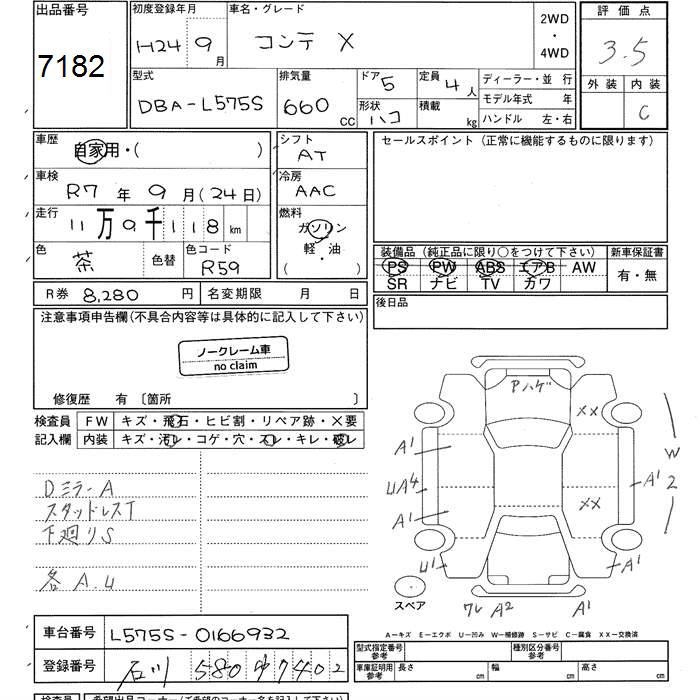 出品番号
7182
初度登録年月
H24 9月
車名・グレード
コンテ X
2WD
・
4WD
評価点
3.5
外装 内装
C
型式
DBA-L575S
排気量
660 CC
ドア 5
形状 ハコ
定員 4人
積載 kg
ディーラー・並行
モデル年式 年
ハンドル 左・右
車歴
自家用・( )
車検
R7年 9月(24日)
走行
11万9千118 km
色
茶
色替
色コード
R59
シフト
AT
冷房
AAC
燃料
ガソリン
軽・油
( ・ )
セールスポイント(正常に機能するものに限ります)
装備品(純正品に限り○をつけて下さい)
PS PW ABS エアB AW
SR ナビ TV カワ
新車保証書
有・無
後日品
R券 8,280 円
名変期限 月 日
注意事項申告欄(不具合内容等は具体的に記入して下さい)
ノークレーム車
no claim
修復歴 有〔箇所 〕
検査員
記入欄
FW キズ・飛石・ヒビ割・リペア跡・X要
内装 キズ・汚レ・コゲ・穴・スレ・キレ・破レ
Dミラー A
スタッドレスT
下廻り S
各 A.U
Pハゲ
XX
A1
UA4
A1
U1
XX
A1
W
2
A1
スペア
ワレ A2
A1
A-キズ E-エクボ U-凹み W-補修跡 S-サビ C-腐食 XX-交換済
車台番号
L575S-0166932
登録番号
石川 580 ゆ 7402
型式指定番号
参考
種別区分番号
参考
車庫証明用
参考
長さ cm
幅 cm
高さ cm
検査員
希望出品コーナー(ご希望のコーナー名を記入して下さい)